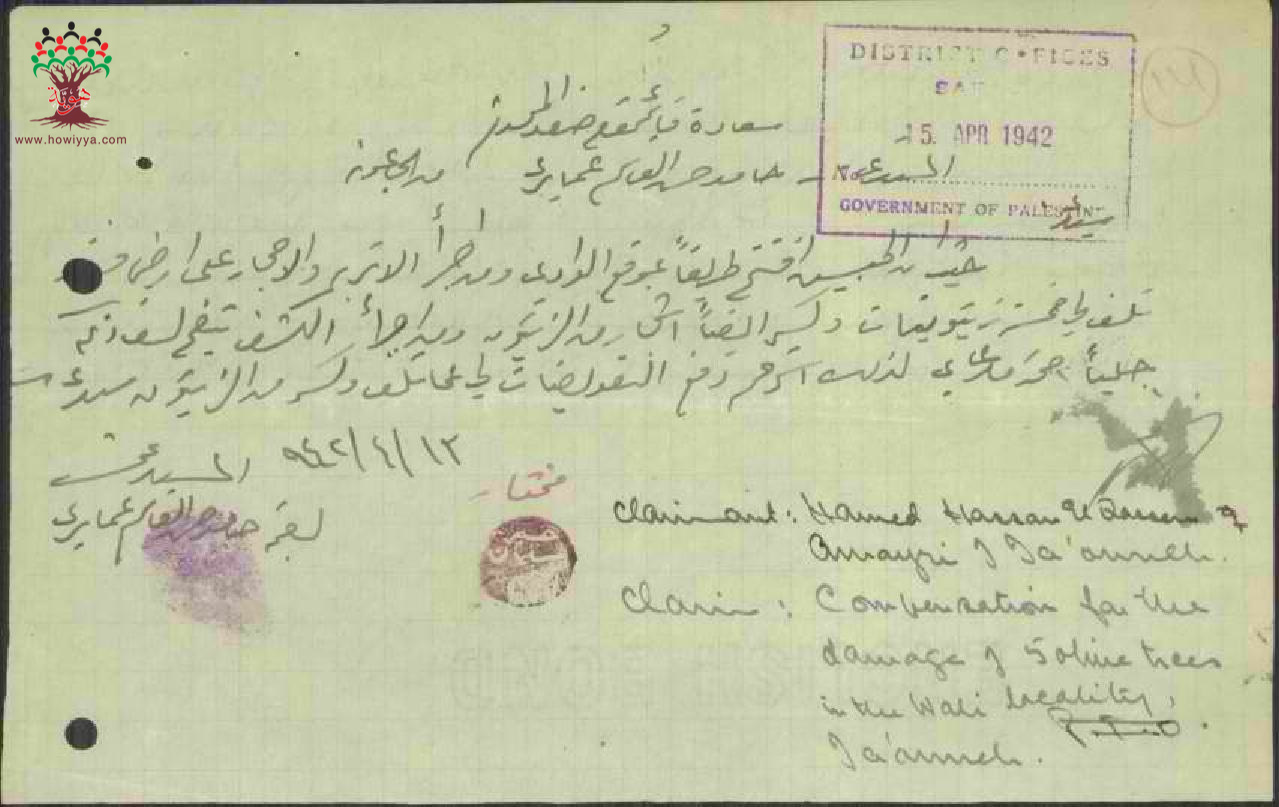 www.howiyya.com
DISTRICT OFFICES
SAF
15 APR 1942
No.
GOVERNMENT OF PALESTINE
114
سعادة قائمقام صفد المحترم
المستدعي - حامد حسن القاسم عمايري من الجاعونة
سيدي
الجيش افتتح طريقاً بموقع الوادي ومن جرأ الاتربه والاحجار على ارضي
تلف لي خمسة زيتونات وكسر ايضاً اشجار من الزيتون ومن اجرائ الكشف يتضح لسعادتكم
جلياً لذلك استرحم دفع التعويضات لي عما تلف وكسر من الزيتون سيدي
١٣/٤/٩٤٢ المستدعي
بصمة حامد حسن القاسم عمايري
مختار
Claimant: Hamed Hassan El Qassem
Amayri of Ja'ouneh.
Claim: Compensation for the
damage of 5 olive trees
in the Wadi locality,
Ja'ouneh.